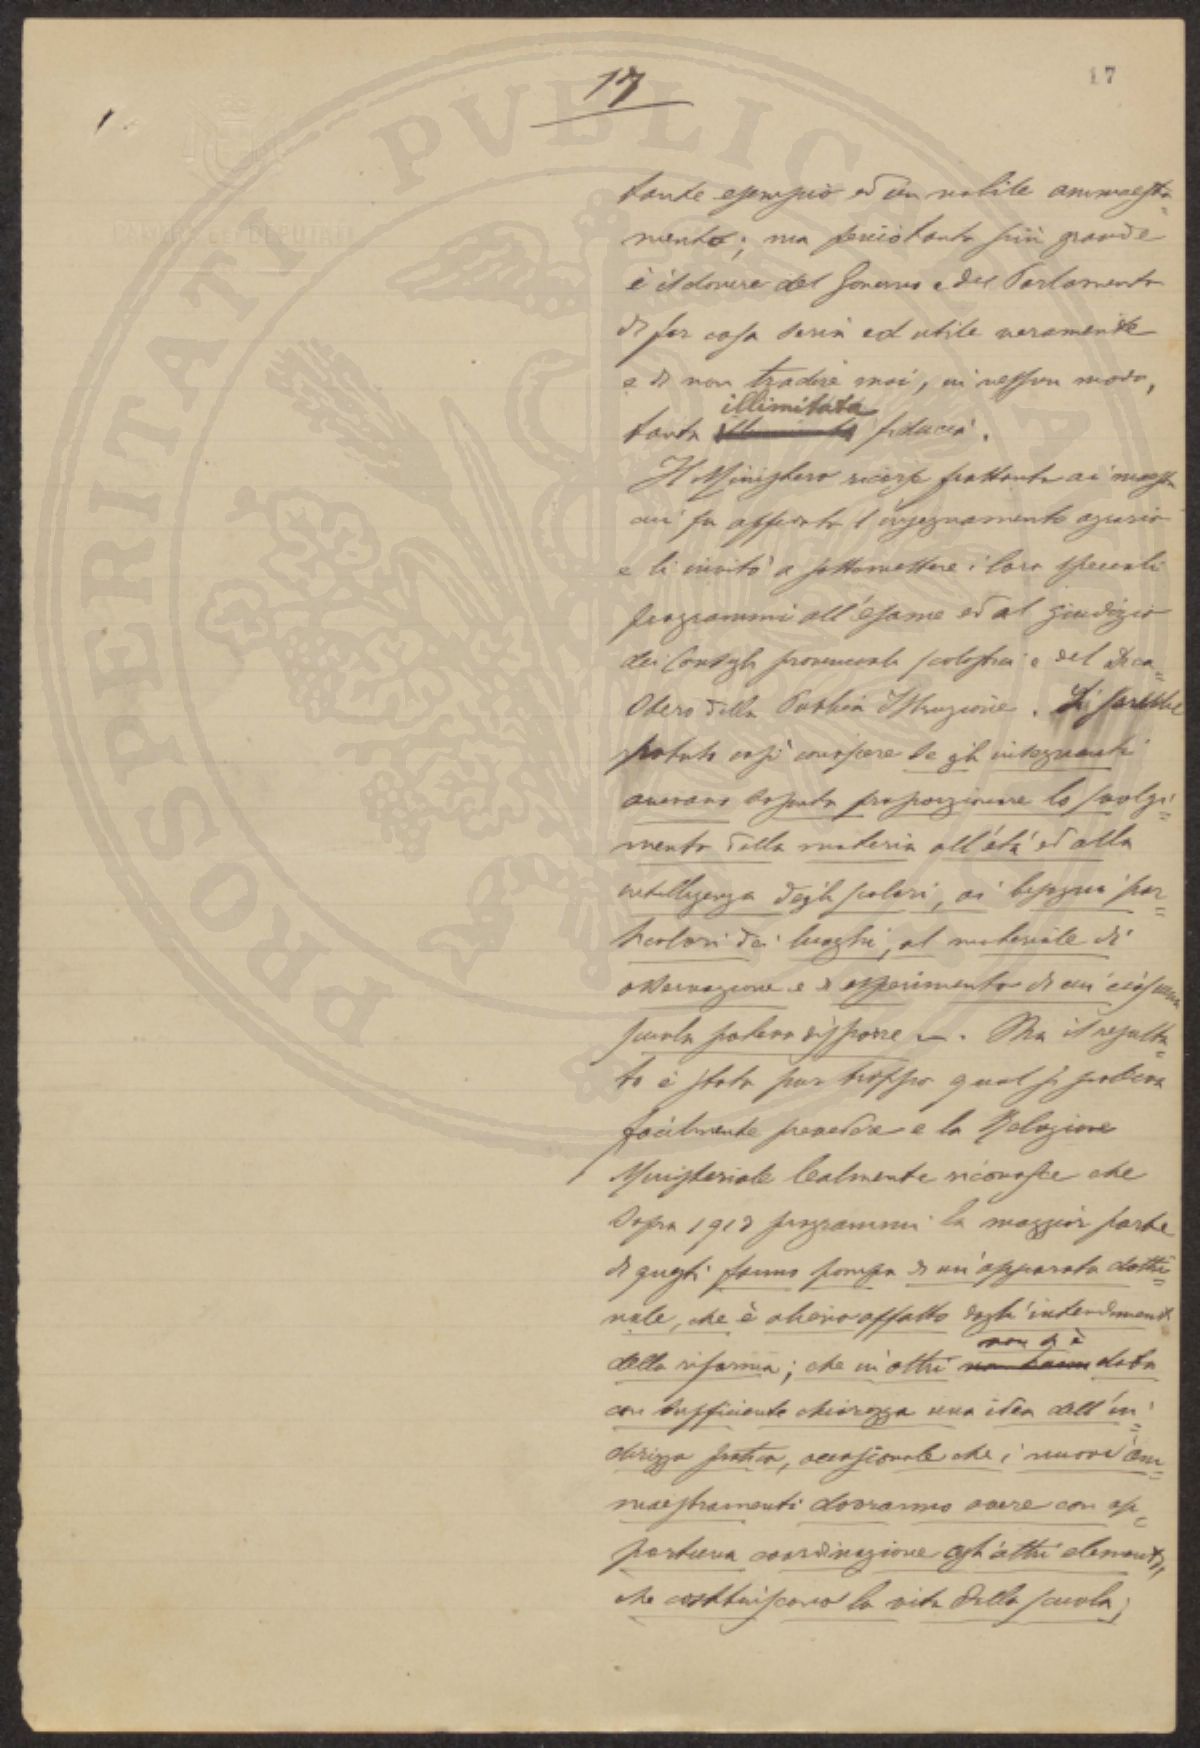 17
17
CAMERA DEI DEPUTATI
PROSPERITATI PVBLICAE
tante esempio ed un nobile ammaestra=
mento; ma perciò tanto più grande
è il dovere del Governo e del Parlamento
di far cosa seria ed utile veramente
e di non tradire mai, in nessun modo,
illimitata
tanta fiducia.
Il Ministero frattanto ai maestri
cui fu affidato l'insegnamento agrario
e li invitò a sottomettere i loro speciali
programmi all'esame ed al giudizio
dei Consigli provinciali scolastici e del Dica=
stero della Pubblica Istruzione. Si sarebbe
potuto così conoscere se gli insegnanti
avevano saputo proporzionare lo svolgi=
mento della materia all'età ed alla
intelligenza degli scolari, ai bisogni par=
ticolari dei luoghi, al materiale di
osservazione e di esperimento di cui ciascuna
scuola poteva disporre. Ma il risulta=
to è stato pur troppo qual si poteva
facilmente prevedere e la Relazione
Ministeriale lealmente riconosce che
sopra programmi la maggior parte
di questi fanno pompa di un'apparato dottri=
nale, che è alieno affatto dagli intendimenti
non si è
della riforma; che in altri data
con sufficiente chiarezza una idea dell'in=
dirizzo pratico, occasionale che i nuovi am=
maestramenti dovranno avere con op=
portuna coordinazione agli altri elementi,
che costituiscono la vita della scuola;